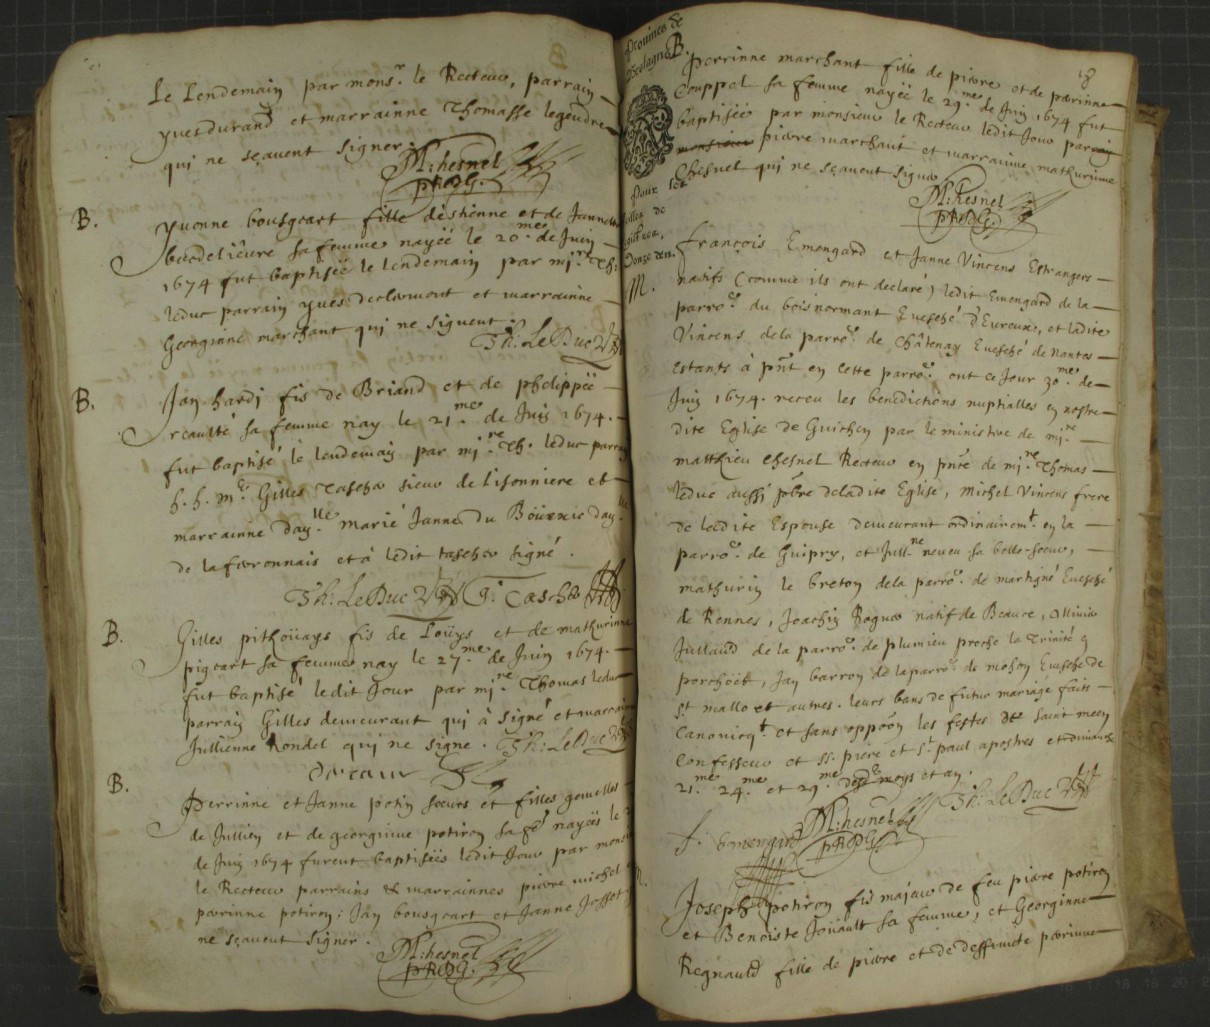 Le Lendemain par mons.r le Recteur, parrain
yves durand et marrainne Thomasse legendre
qui ne sçavent signer.
M: Chesnel
P R D G.
B.
yvonne bousgeart fille d'estienne et de Janne
sa femme nayéé le 20.me de Juin
1674 fut baptiséé le lendemain par mi.re Th:
leduc parrain yves declermont et marrainne
Georginne marchant qui ne signent.
Th: Le Duc
B.
Jan hardi fis de Briand et de phelippéé
reaulté sa femme nay le 21.me de Juin 1674.
fut baptisé le lendemain par mi.re Th. leduc parrain
h. h. m.e Gilles Tascher sieur de lisonniere et
marrainne day.lle marié Janne du Boüexic day.
de la feronnais et à ledit tascher signé.
Th: Le Duc G: Tascher
B.
Gilles pithoüays fis de Loüys et de mathurinne
pigeart sa femme nay le 27.me de Juin 1674.
fut baptisé ledit Jour par mi.re Thomas leduc
parrain Gilles demeurant qui à signé et marrainne
Jullienne Rondel qui ne signe. Th: Le Duc
B.
Perrinne et Janne potin soeurs et filles gemelles
de Jullien et de georginne potiron sa fe nayéés le
de Juin 1674 furent baptiséés ledit Jour par mons
le Recteur parrains & marrainnes pierre michel
perrinne potiron; Jan bousgeart et Janne Josset
ne sçavent signer.
M: Chesnel
P R D G.
Prouince de
Bretagne
B.
18
Perrinne marchant fille de pierre et de perrinne
Couppel sa femme nayéé le 29.me de Juin 1674 fut
baptiséé par monsieur le Recteur ledit Jour parrain
monsieur pierre marchant et marrainne mathurinne
Chesnel qui ne sçavent signer
M: Chesnel
P R D G.
Pour
M.
françois Emengard et Janne Vincens Estrangers
natifs (comme ils ont declaré) ledit Emengard de la
parro.e du bois normant Evesché d'Evreux, et ladite
Vincens de la parro.e de Châtenay Evesché de nantes
estants à pnt en cette parro.e ont ce Jour 30.me de
Juin 1674. receu les benedictions nuptialles en nostre
dite Eglise de Guichen par le ministere de mi.re
matthieu Chesnel Recteur en pnte de mi.re Thomas
leduc aussi pbre de ladite Eglise, Michel Vincens frere
de ladite Espouse demeurant ordinairem.t en la
parro.e de Guipry, et Jull.ne neveu sa belle-soeur,
mathurin le breton de la parro.e de martigné Evesché
de Rennes, Joachin Roguer natif de Beauce, Ollivier
Jullaud de la parro.e de plumieu proche la Trinité
porchöet, Jan barron de la parro.e de mohon Evesché de
S.t mallo et autres. leurs bans de futur mariage faits
Canonicq.t et sans oppoõn les festes de saint meen
Confesseur et SS. piere et S.t paul apostres et dimanche
21.me 24.me et 29.me desd. moys et an.
f. Emengard M: Chesnel Th: Le Duc
P R D G.
M.
Joseph potiron fis majeur de feu pierre potiron
et Benoiste Joüault sa femme, et Georginne
Regnauld fille de pierre et de deffuncte perinne